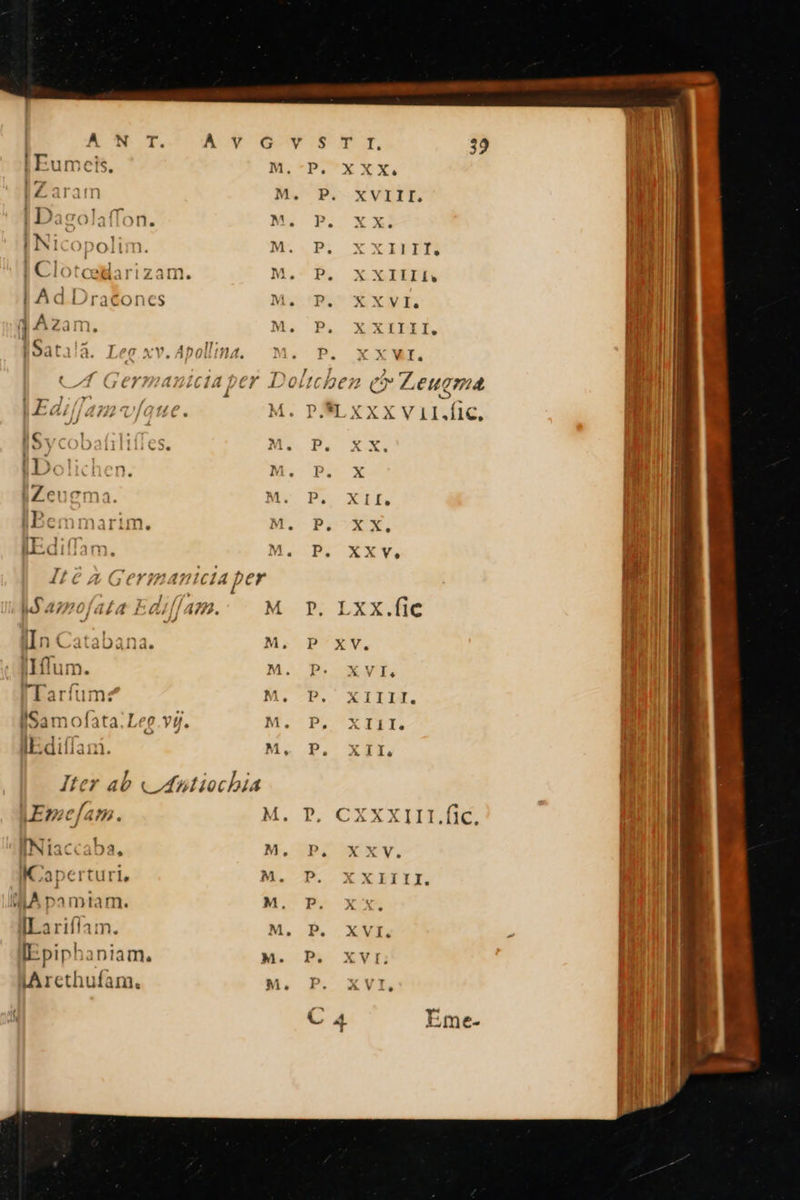 ANT. AVGVSTI. 39
Eumeis. M. P. XXX.
Zaram M. P. XVIII.
Dagolaſſon. M. P. XX.
Nicopolim. M. P. XXIIII.
Clotoedarizam. M. P. XXIIII.
Ad Dracones M. P. XXVI.
Azam. M. P. XXIIII.
Satalá. Leg xv. Apollina. M. P. XXVI.
A Germanicia per Dolichen & Zeugma
Ediſſam vſque. M. P. LXXXVII.ſic.
Sycobaſiliſſes. M. P. XX.
Dolichen. M. P. X
Zeugma. M. P. XII.
Bemmarim. M. P. XX.
Ediſſam. M. P. XXV.
Itē à Germanicia per
Samoſata Ediſſam. M P. LXX.ſic
In Catabana. M. P XV.
Iſſum. M. P. XVI.
Tarſume M. P. XIIII.
Samoſata. Leg. vij. M. P. XIII.
Ediſſam. M. P. XII.
Iter ab Antiochia
Emeſam. M. P. CXXXIII.ſic.
Niaccaba. M. P. XXV.
Caperturi. M. P. XXIIII.
Apamiam. M. P. XX.
Lariſſam. M. P. XVI.
Epiphaniam. M. P. XVI.
Arethuſam. M. P. XVI.
C 4 Eme-